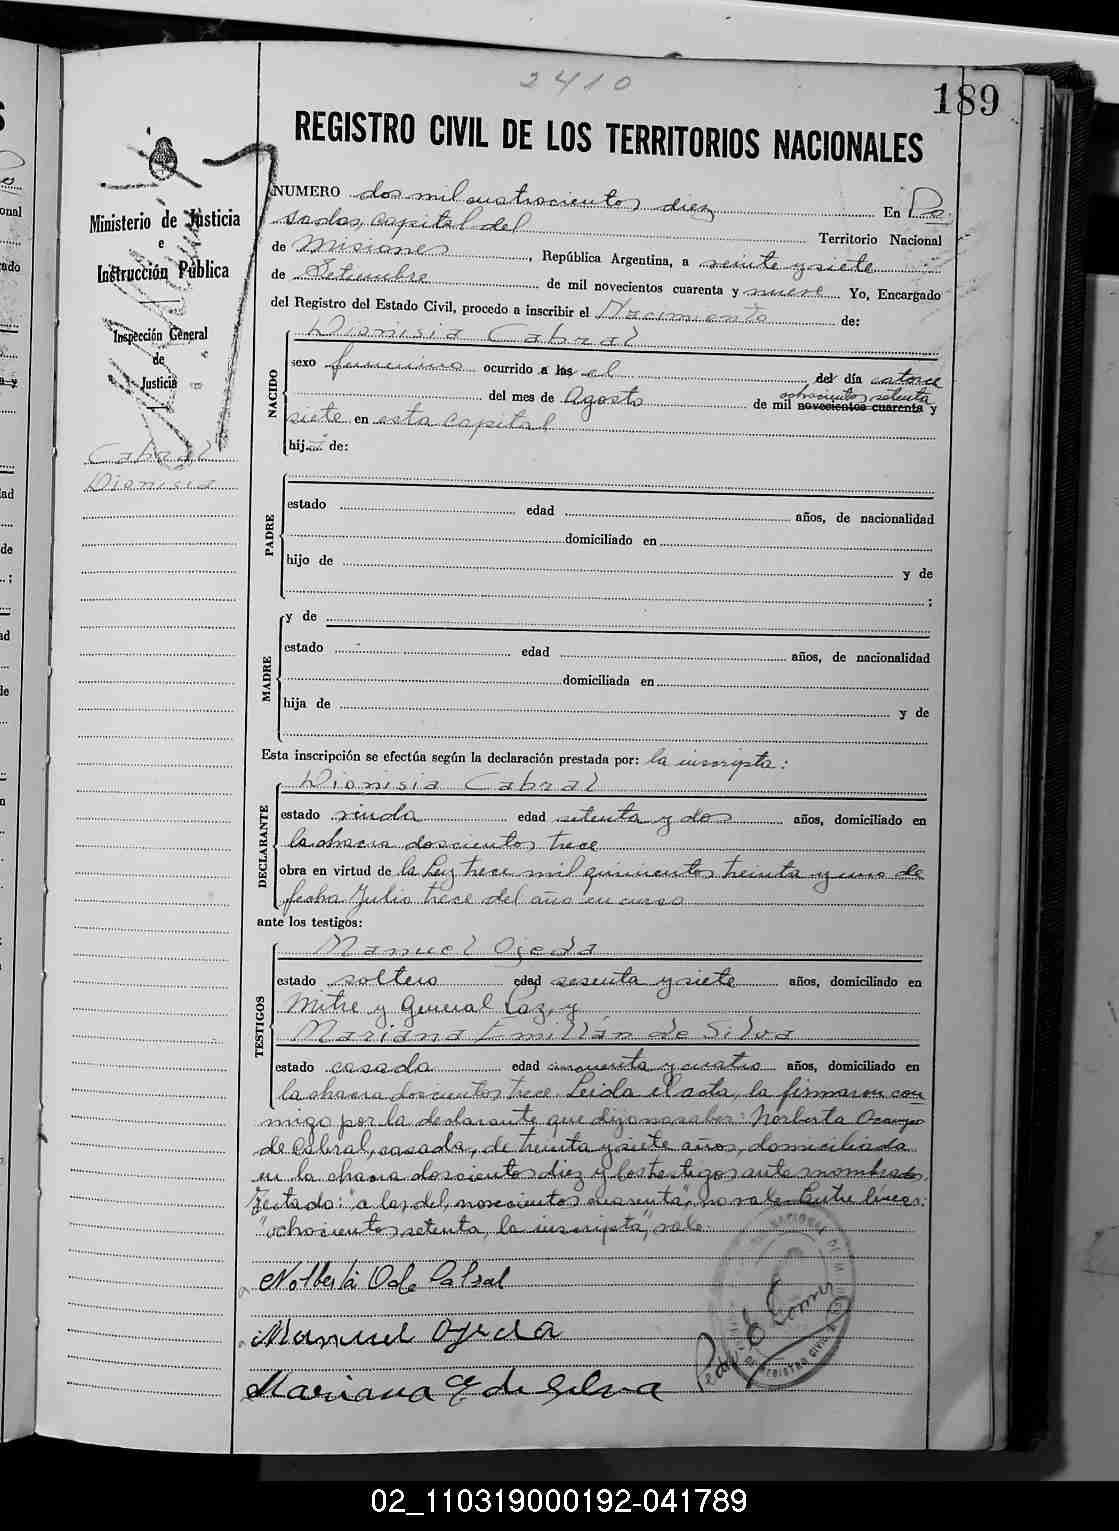 2410
189
REGISTRO CIVIL DE LOS TERRITORIOS NACIONALES
Ministerio de Justicia
e
Instrucción Pública
Inspección General
de
Justicia
Cabral
Dionisia
NUMERO dos mil cuatrocientos diez En Po
sadas, capital del Territorio Nacional
de Misiones, República Argentina, a veinte y siete
de Setiembre de mil novecientos cuarenta y nueve Yo, Encargado
del Registro del Estado Civil, procedo a inscribir el Nacimiento de:
NACIDO
Dionisia Cabral
sexo femenino ocurrido a las el del día catorce
ochocientos setenta
del mes de Agosto de mil novecientos cuarenta y
siete en esta capital
hij de:
PADRE
estado edad años, de nacionalidad
domiciliado en
hijo de y de
;
y de
MADRE
estado edad años, de nacionalidad
domiciliada en
hija de y de
Esta inscripción se efectúa según la declaración prestada por: la inscripta:
DECLARANTE
Dionisia Cabral
estado viuda edad setenta y dos años, domiciliado en
la chacra doscientos trece
obra en virtud de la Ley trece mil quinientos treinta y uno de
fecha Julio trece del año en curso
ante los testigos:
TESTIGOS
Manuel Ojeda
estado soltero edad sesenta y siete años, domiciliado en
Mitre y General Paz, y
Mariana Emillán de Silva
estado casada edad cincuenta y cuatro años, domiciliado en
la chacra doscientos trece. Leida el acta, la firmaron con
migo por la declarante que dijo no saber: Norberta Ocampo
de Cabral, casada, de treinta y siete años, domiciliada
en la chacra doscientos diez y los testigos ante nombrados.
Testado: "a las, del, novecientos cuarenta", no vale. Entre líneas:
"ochocientos setenta, la inscripta", vale.
Nolberta O de Cabral
Manuel Ojeda
Mariana E de Silva
02_110319000192-041789